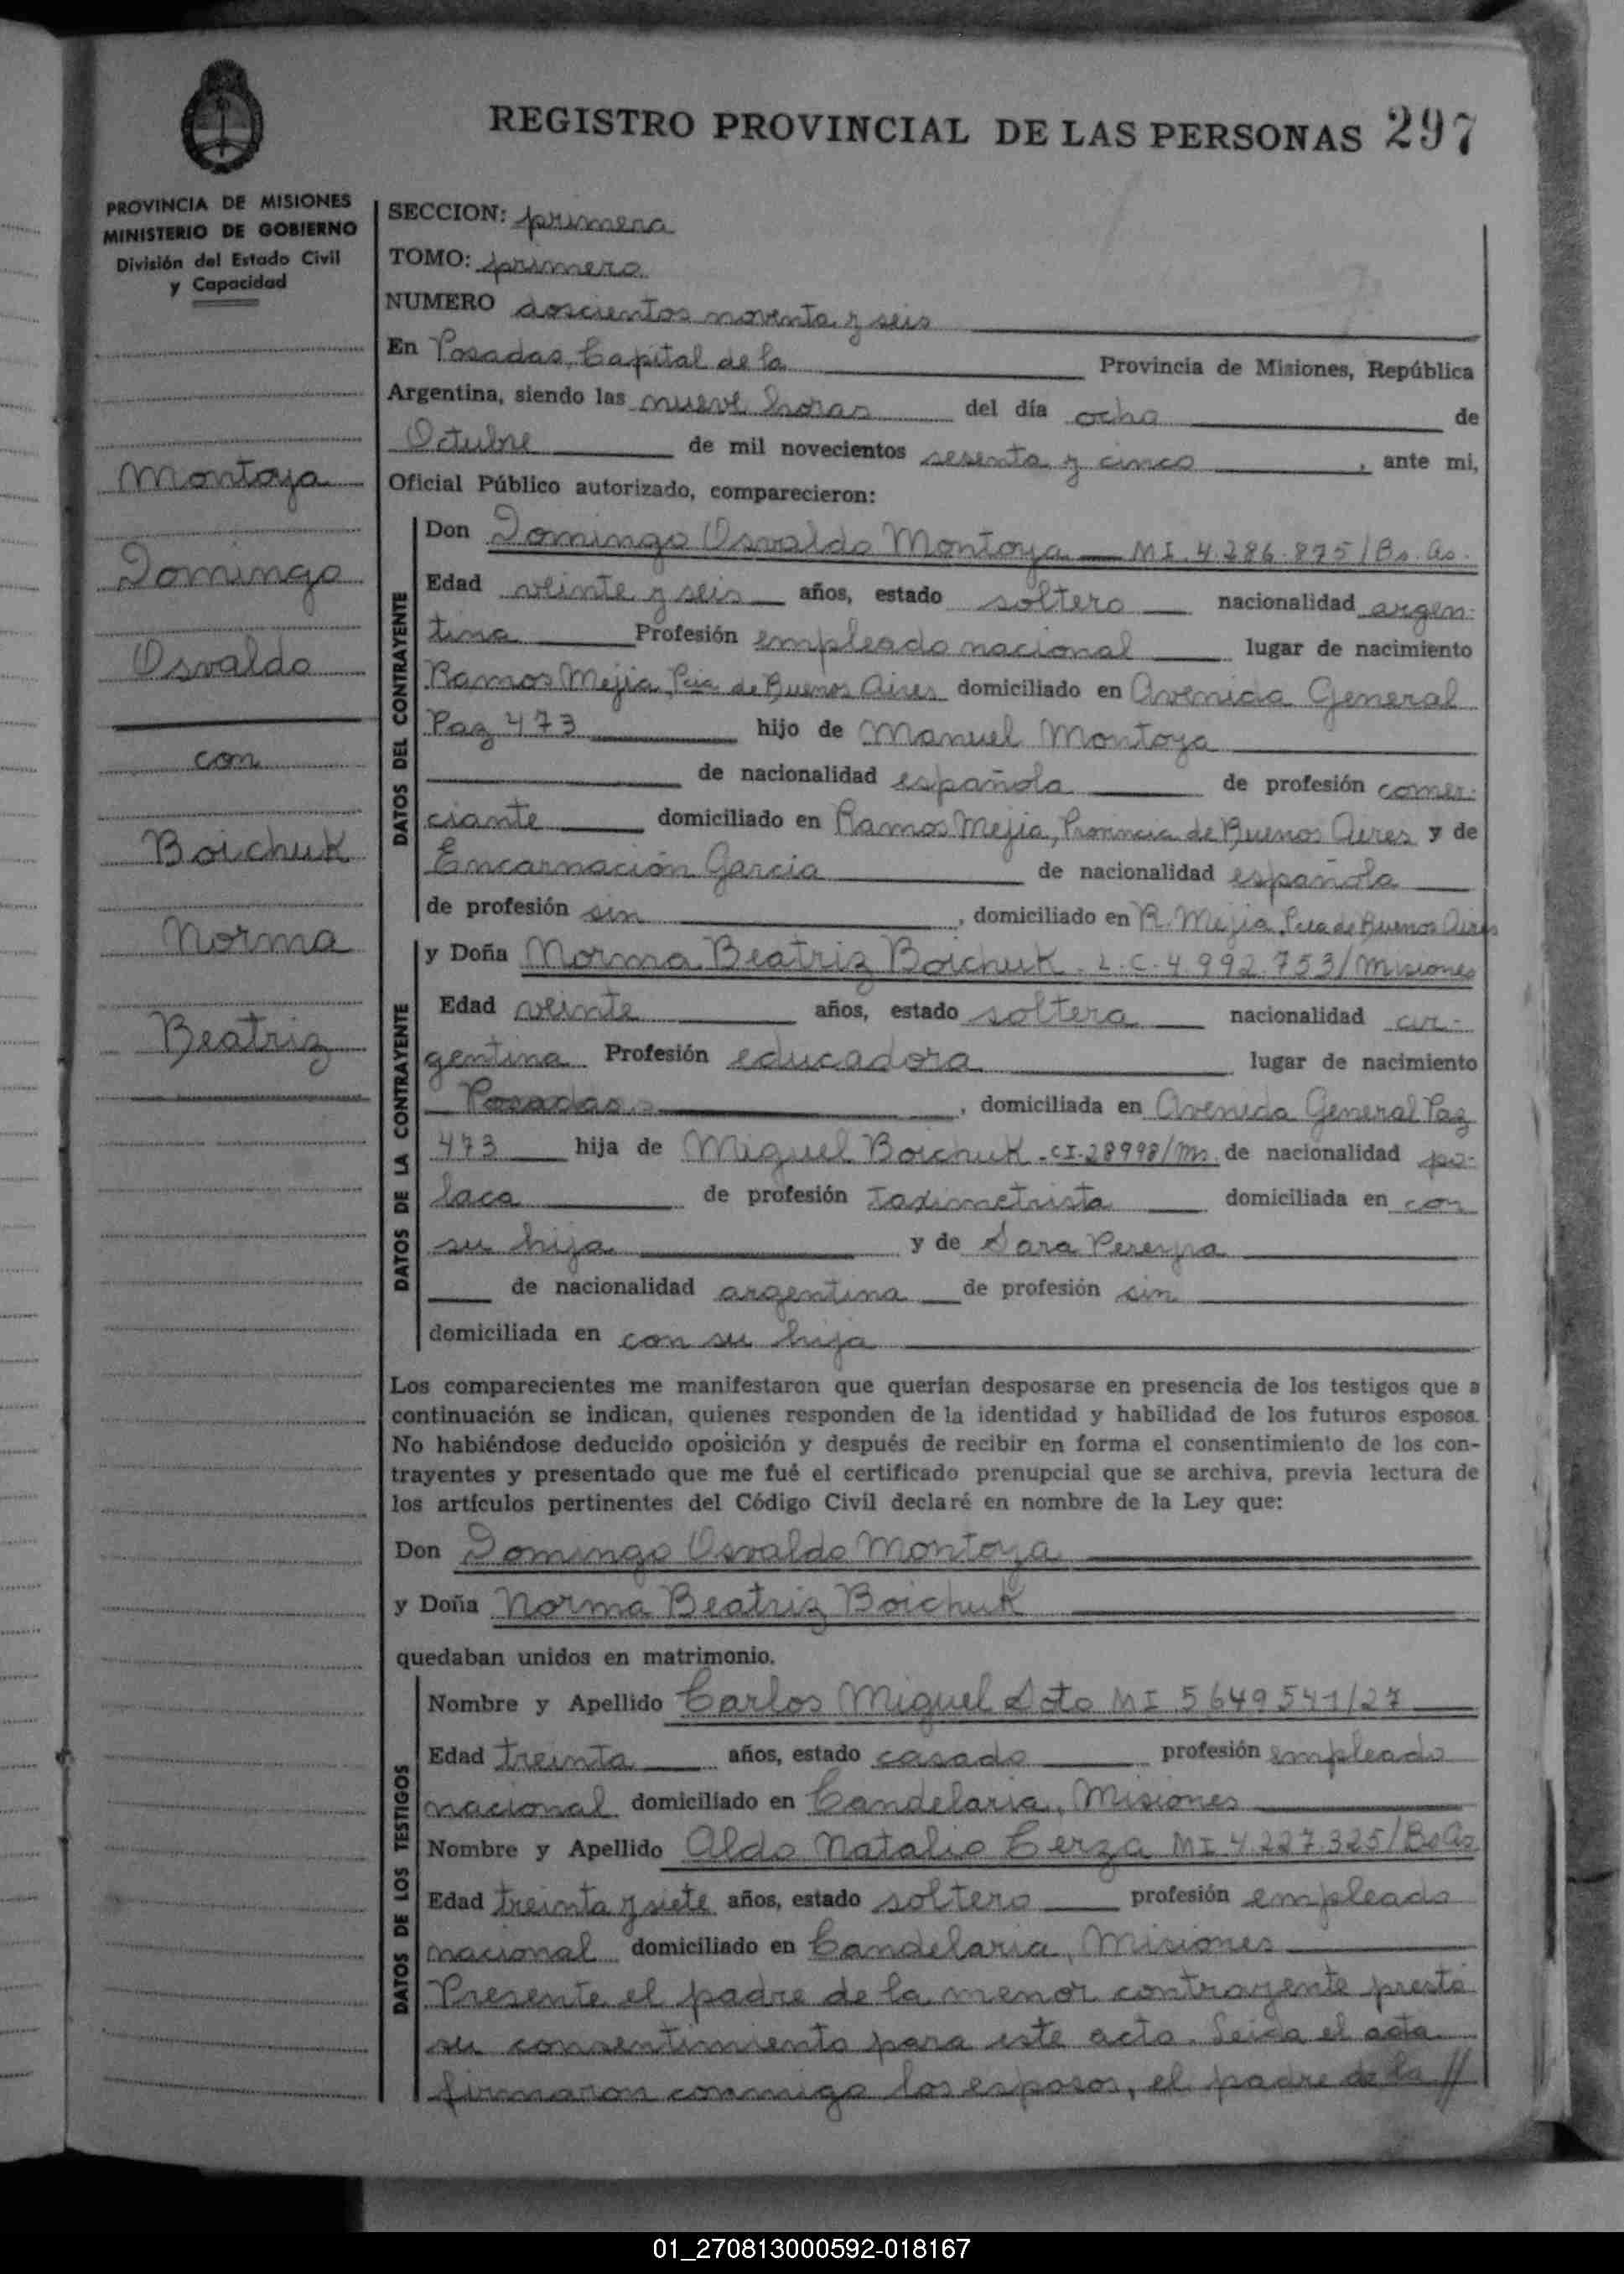 REGISTRO PROVINCIAL DE LAS PERSONAS 297
PROVINCIA DE MISIONES
MINISTERIO DE GOBIERNO
División del Estado Civil
y Capacidad
Montoya
Domingo
Osvaldo
con
Boichuk
Norma
Beatriz
SECCION: primera
TOMO: primero
NUMERO doscientos noventa y seis
En Posadas, Capital de la Provincia de Misiones, República
Argentina, siendo las nueve horas del día ocho de
Octubre de mil novecientos sesenta y cinco, ante mi,
Oficial Público autorizado, comparecieron:
DATOS DEL CONTRAYENTE
Don Domingo Osvaldo Montoya MI. 4.286.875/Bs. As.
Edad veinte y seis años, estado soltero nacionalidad argen-
tina Profesión empleado nacional lugar de nacimiento
Ramos Mejia, Pcia de Buenos Aires domiciliado en Avenida General
Paz 473 hijo de Manuel Montoya
de nacionalidad española de profesión comer-
ciante domiciliado en Ramos Mejia, Provincia de Buenos Aires y de
Encarnación Garcia de nacionalidad española
de profesión sin, domiciliado en R. Mejia, Pcia de Buenos Aires
DATOS DE LA CONTRAYENTE
y Doña Norma Beatriz Boichuk. L.C. 4.992.753/Misiones
Edad veinte años, estado soltera nacionalidad ar-
gentina Profesión educadora lugar de nacimiento
Posadas, domiciliada en Avenida General Paz
473 hija de Miguel Boichuk - CI. 28998/Ms. de nacionalidad po-
laca de profesión Taximetrista domiciliada en con
su hija y de Sara Pereyra
de nacionalidad argentina de profesión sin
domiciliada en con su hija
Los comparecientes me manifestaron que querían desposarse en presencia de los testigos que a
continuación se indican, quienes responden de la identidad y habilidad de los futuros esposos.
No habiéndose deducido oposición y después de recibir en forma el consentimiento de los con-
trayentes y presentado que me fué el certificado prenupcial que se archiva, previa lectura de
los artículos pertinentes del Código Civil declaré en nombre de la Ley que:
Don Domingo Osvaldo Montoya
y Doña Norma Beatriz Boichuk
quedaban unidos en matrimonio.
DATOS DE LOS TESTIGOS
Nombre y Apellido Carlos Miguel Soto MI 5649541/27
Edad treinta años, estado casado profesión empleado
nacional domiciliado en Candelaria, Misiones
Nombre y Apellido Aldo Natalio Cerza MI 4.227.325/Bs As
Edad treinta y siete años, estado soltero profesión empleado
nacional domiciliado en Candelaria, Misiones
Presente el padre de la menor contrayente prestó
su consentimiento para este acto. Leida el acta
firmaron conmigo los esposos, el padre de la //
01_270813000592-018167